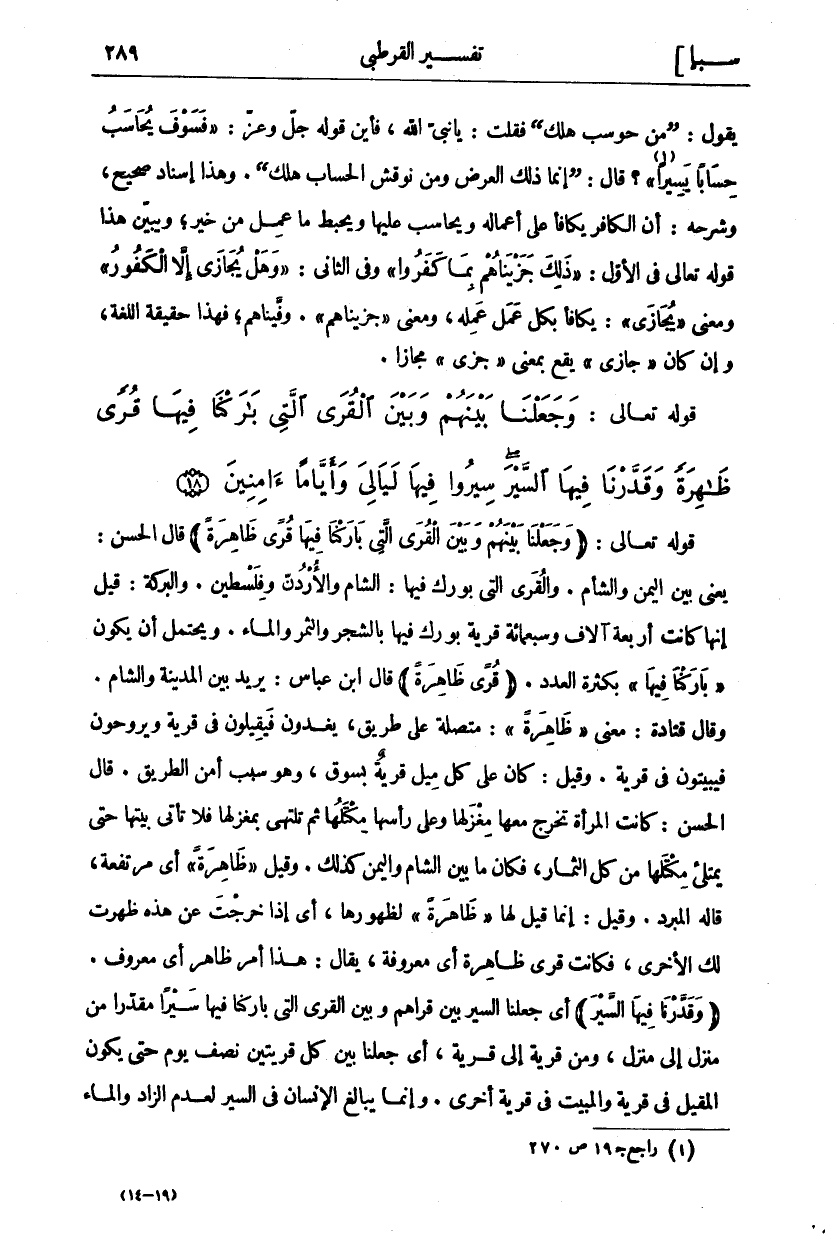 سبإ]
تفسير القرطبى
٢٨٩
يقول : ”من حوسب هلك“ فقلت : يانبىّ الله ، فأين قوله جلّ وعزّ : «فَسَوْفَ يُحَاسَبُ
حِسَابًا يَسِيرًا(١)» ؟ قال : ”إنما ذلك العرض ومن نوقش الحساب هلك“ . وهذا إسناد صحيح،
وشرحه : أن الكافر يكافأ على أعماله ويحاسب عليها ويحبط ما عمِل من خير؛ ويبيّن هذا
قوله تعالى فى الأوّل : «ذَلِكَ جَزَيْنَاهُمْ بِمَا كَفَرُوا» وفى الثانى : «وَهَلْ يُجَازَى إِلَّا الْكَفُورُ»
ومعنى «يُجَازَى» : يكافأ بكل عَمَل عَمِله، ومعنى «جزيناهم» . وفّيناهم؛ فهذا حقيقة اللغة،
و إن كان « جازى » يقع بمعنى « جزى » مجازا .
قوله تعالى : وَجَعَلْنَا بَيْنَهُمْ وَبَيْنَ ٱلْقُرَى ٱلَّتِى بَٰرَكْنَا فِيهَا قُرًى
ظَٰهِرَةً وَقَدَّرْنَا فِيهَا ٱلسَّيْرَۖ سِيرُوا فِيهَا لَيَالِىَ وَأَيَّامًا ءَامِنِينَ ﴿١٨﴾
قوله تعالى : ﴿ وَجَعَلْنَا بَيْنَهُمْ وَبَيْنَ الْقُرَى الَّتِى بَارَكْنَا فِيهَا قُرًى ظَاهِرَةً ﴾ قال الحسن :
يعنى بين اليمن والشأم . والقُرَى التى بورك فيها : الشام والأُرْدُنّ وفِلَسْطين . والبركة : قيل
إنها كانت أربعة آلاف وسبعمائة قرية بورك فيها بالشجر والثمر والماء . ويحتمل أن يكون
« بَارَكْنَا فِيهَا » بكثرة العدد . ﴿ قُرًى ظَاهِرَةً ﴾ قال ابن عباس : يريد بين المدينة والشام .
وقال قتادة : معنى « ظَاهِرَةً » : متصلة على طريق، يغدون فَيَقِيلون فى قرية ويروحون
فيبيتون فى قرية . وقيل : كان على كل مِيل قريةٌ بسوق ، وهو سبب أمن الطريق . قال
الحسن : كانت المرأة تخرج معها مِغْزَلها وعلى رأسها مِكْتَلُها ثم تلتهى بمغزلها فلا تأتى بيتها حتى
يمتلئ مِكْتَلها من كل الثمار، فكان ما بين الشام واليمن كذلك . وقيل «ظَاهِرَةً» أى مرتفعة،
قاله المبرد . وقيل : إنما قيل لها « ظَاهِرَةً » لظهورها ، أى إذا خرجْتَ عن هذه ظهرت
لك الأخرى ، فكانت قرى ظاهرة أى معروفة ، يقال : هذا أمر ظاهر أى معروف .
﴿ وَقَدَّرْنَا فِيهَا السَّيْرَ ﴾ أى جعلنا السير بين قراهم و بين القرى التى باركنا فيها سَيْرًا مقدّرا من
منزل إلى منزل ، ومن قرية إلى قرية ، أى جعلنا بين كل قريتين نصف يوم حتى يكون
المقيل فى قرية والمبيت فى قرية أخرى . وإنما يبالغ الإنسان فى السير لعدم الزاد والماء
(١) راجع ج ١٩ ص ٢٧٠
(١٤−١٩)